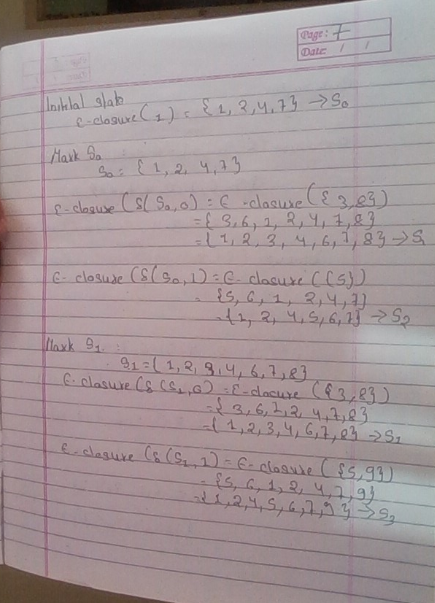 Page: 7
Date: / /
Initial stab
ε-closure(1) = {1, 3, 4, 7} → S0
Mark S0
S0 = {1, 2, 4, 7}
ε-closure(δ(S0,0) = ε-closure({3,8})
= {3, 6, 1, 2, 4, 7, 8}
= {1, 2, 3, 4, 6, 7, 8} → S1
ε-closure(δ(S0,1) = ε-closure((5})
= {5, 6, 1, 2, 4, 7}
= {1, 2, 4, 5, 6, 7} → S2
Mark S1 :
S1 = {1, 2, 3, 4, 6, 7, 8}
ε-closure(δ(S1,0) = ε-closure({3,8})
= {3, 6, 1, 2, 4, 7, 8}
= {1, 2, 3, 4, 6, 7, 8} → S1
ε-closure(δ(S1,1) = ε-closure({5,9})
= {5, 6, 1, 2, 4, 7, 9}
= {1, 2, 4, 5, 6, 7, 9} → S3